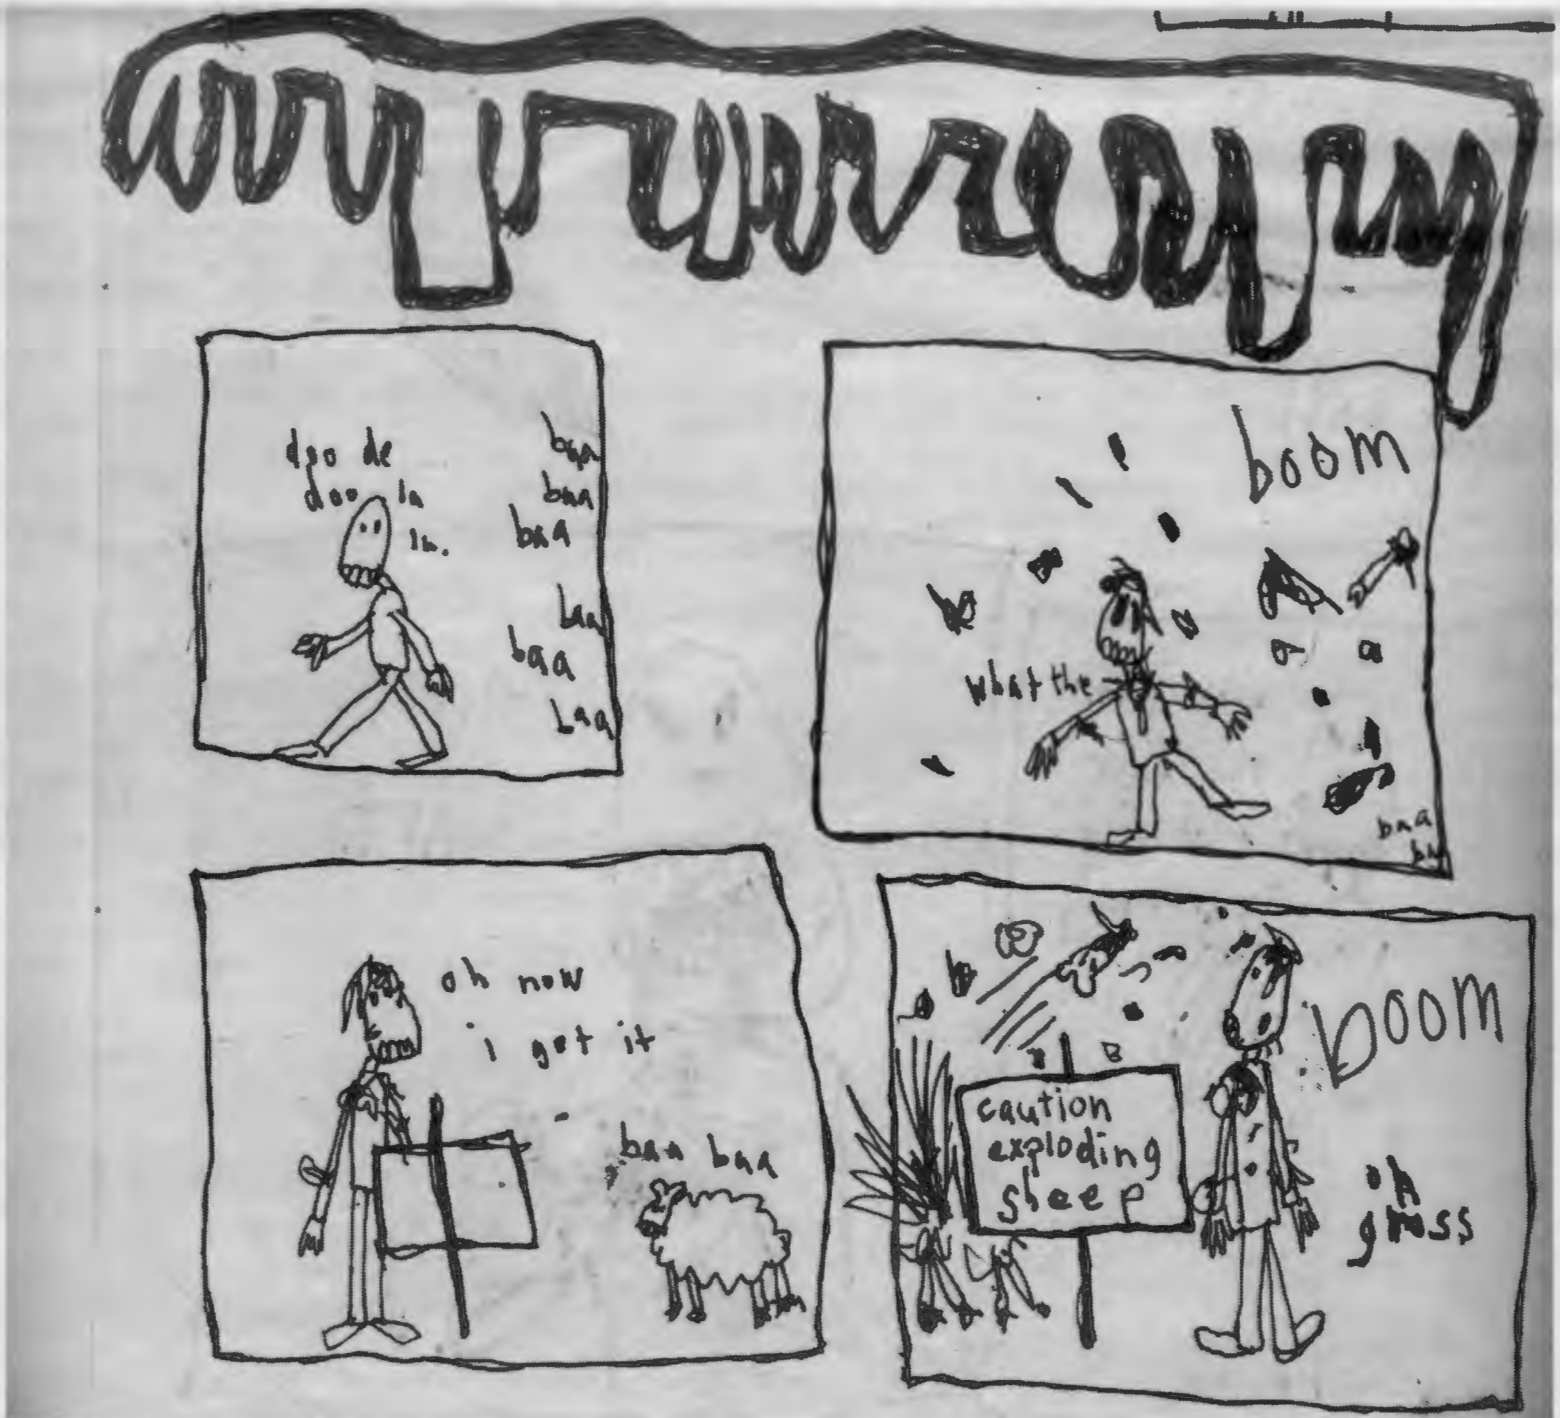 doo de
doo la
la.
baa
baa
baa
baa
baa
baa
boom
what the
baa
oh now
i get it
baa baa
boom
caution
exploding
sheep
oh
gross